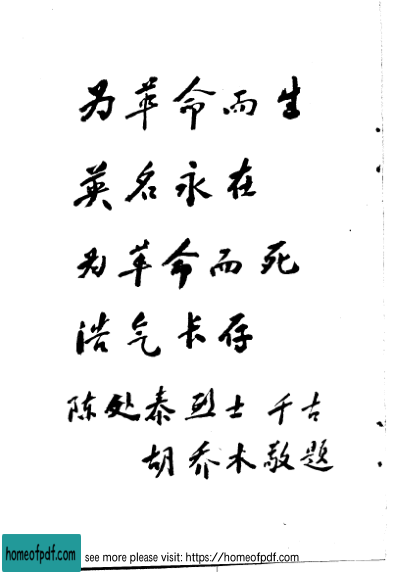 为革命而生
英名永在
为革命而死
浩气长存
陈处泰烈士 千古
胡乔木敬题
homeofpdf.com
see more please visit: https://homeofpdf.com